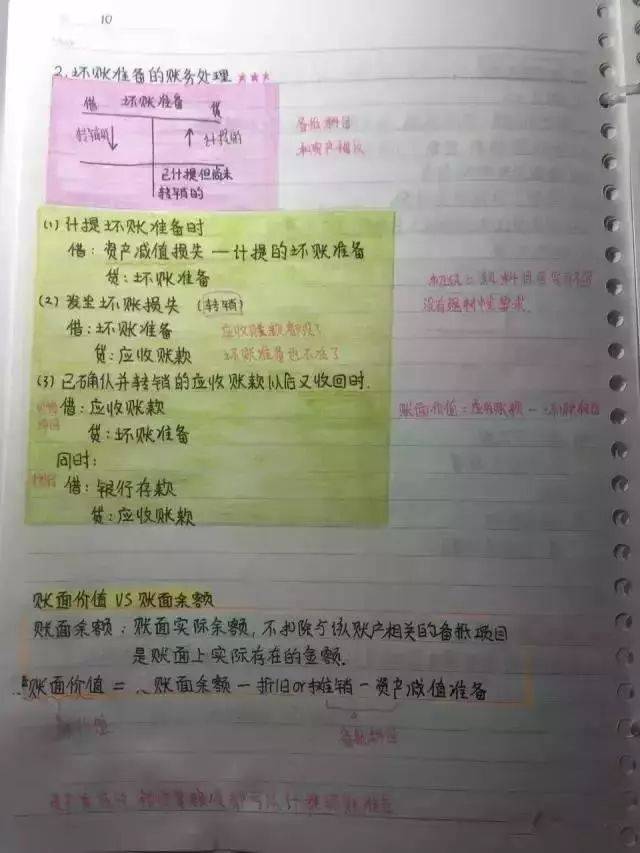 10
2. 坏账准备的账务处理 ★★★
借 坏账准备 贷
转销的 ↓ ↑ 计提的
已计提但尚未
转销的
备抵科目
和资产相反
(1) 计提坏账准备时
借：资产减值损失 — 计提的坏账准备
贷：坏账准备
(2) 发生坏账损失 (转销)
借：坏账准备 应收账款都没了
贷：应收账款 坏账准备也不在了
没有强制性要求.
(3) 已确认并转销的应收账款以后又收回时.
借：应收账款
贷：坏账准备
账面价值 = 应收账款 - 坏账准备
同时：
借：银行存款
贷：应收账款
账面价值 VS 账面余额
账面余额：账面实际余额, 不扣除与该账产相关的备抵项目
是账面上实际存在的金额.
账面价值 = 账面余额 - 折旧or摊销 - 资产减值准备
备抵科目